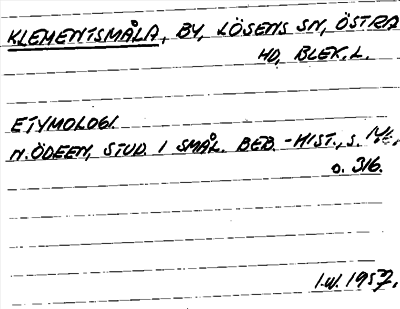 KLEMENTSMÅLA, BY, LÖSENS SN, ÖSTRA
HD, BLEK. L.
ETYMOLOGI.
N. ÖDEEN, STUD. I SMÅL. BEB. - HIST., S.
O. 316.
I.W. 1957.